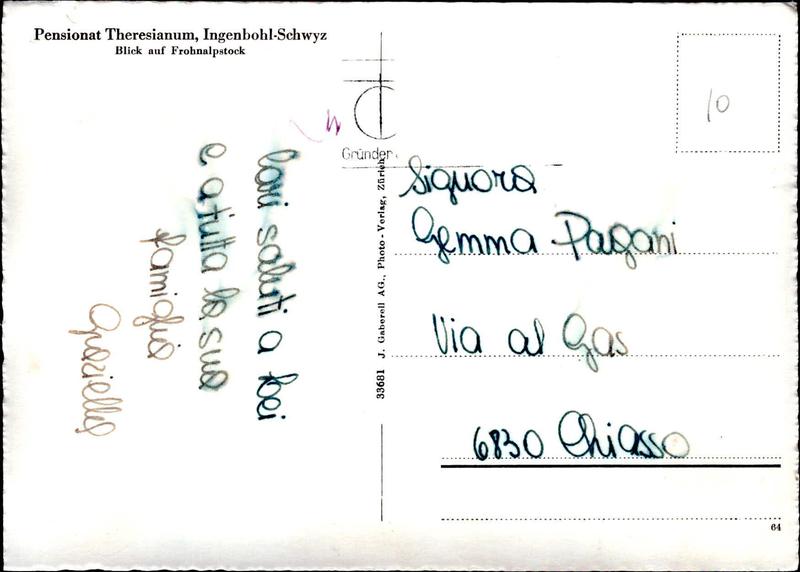 Pensionat Theresianum, Ingenbohl-Schwyz
Blick auf Frohnalpstock
10
Gründer
Cari saluti a Lei
e a tutta la sua
famiglia
Graziella
33681 J. Gaberell AG., Photo-Verlag, Zürich
Signora
Gemma Pagani
Via al Gas
6830 Chiasso
64